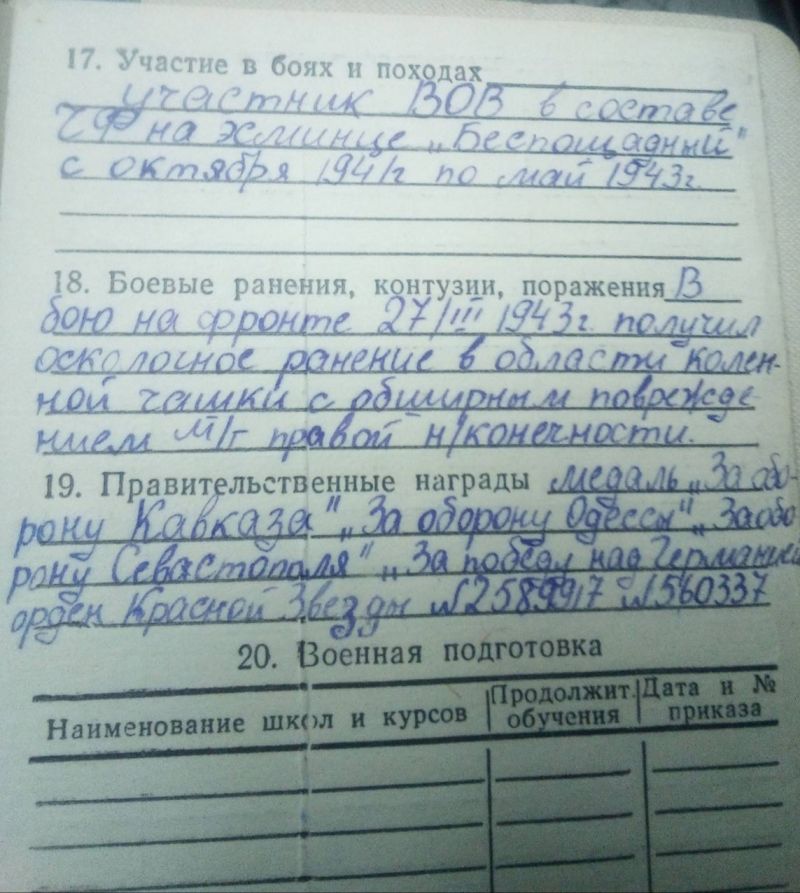 17. Участие в боях и походах
участник ВОВ в составе
ЧФ на эсминце „Беспощадный"
с октября 1941г по май 1943г.
18. Боевые ранения, контузии, поражения В
бою на фронте 27/III 1943г. получил
осколочное ранение в области колен-
ной чашки с обширным поврежде
нием м/т правой н/конечности.
19. Правительственные награды медаль „За обо-
рону Кавказа" „За оборону Одессы" „За обо
рону Севастополя" „За победу над Германией
орден Красной Звезды №2589917 №560337
20. Военная подготовка
Наименование школ и курсов
Продолжит. обучения
Дата и № приказа